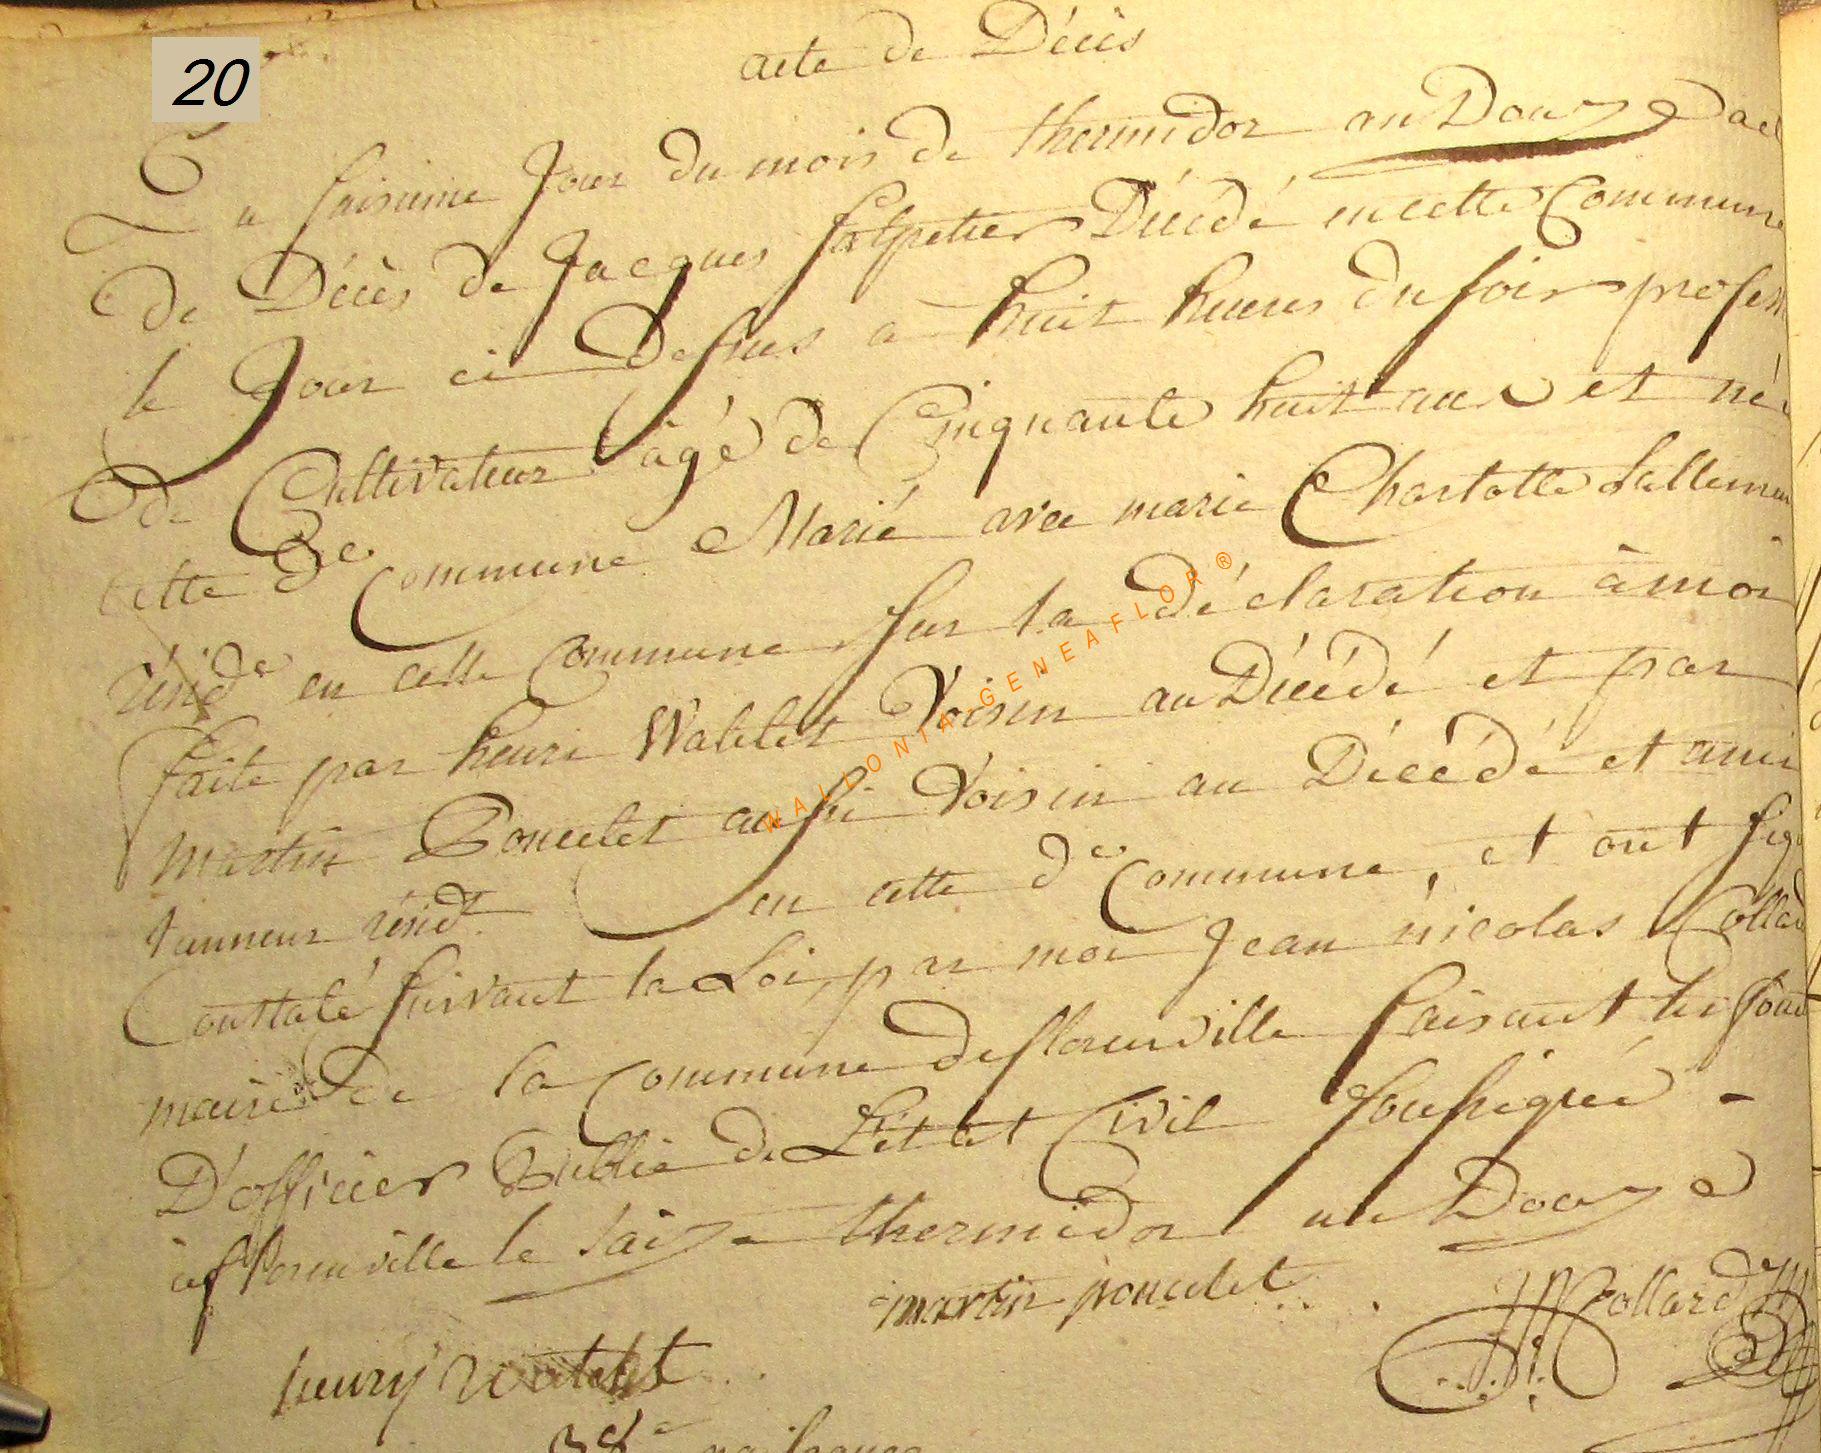 20
acte de Décès
Le saisieme Jour du mois de thermidor an Douze
de Décès de Jacques salpetier Décédé en cette Commune
le Jour ci Dessus a huit heures du soir
de Cultivateur âgé de Cinquante huit ans et né
cette de. Commune Marié avec marie Charlotte
résid.e en cette Commune sur la déclaration à moi
faite par henri Watelet Voisin au Décédé et par
martin Poncelet aussi Voisin au Décédé et ami
tanneur résid.t en cette de. Commune, et ont
Constaté suivant la Loi, par moi Jean nicolas Collard
maire de la Commune de florenville faisant les
D'officier Public de L'état Civil soussigné -
à florenville le saize thermidor an Douze
martin poncelet
Collard
henry watelet
38e naissance
WALLONIA-GENEAFLOR®